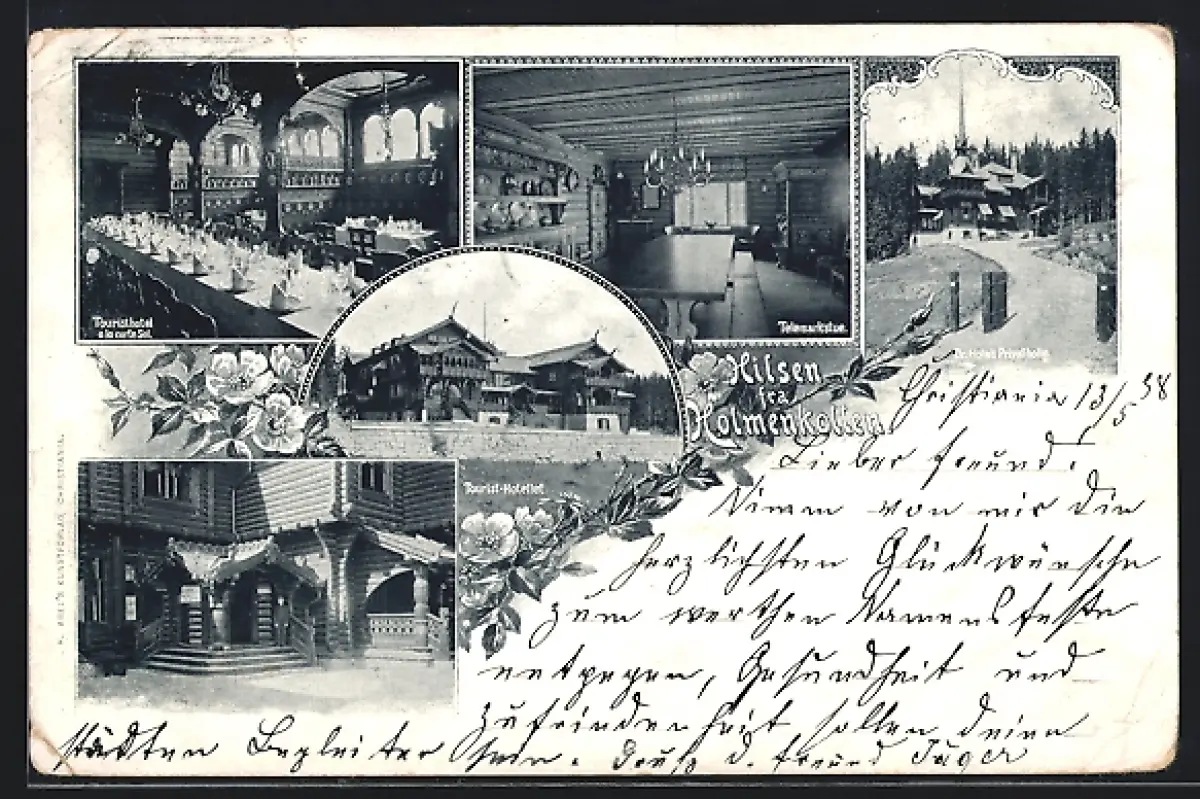 Touristhotel
a la carte Sal.
Telemarkstue.
Dr. Holms Privatbolig
Hilsen
fra
Holmenkollen
Tourist-Hotellet
KUNSTFORLAG, CHRISTIANIA.
Christiania 13/5 98
Lieber Freund.
Nimm von mir die
herzlichsten Glückwünsche
zum werthen Namensfeste
entgegen, Gesundheit und
Zufriedenheit sollen deine
städten Begleiter sein. Gruß d. Freund Jäger